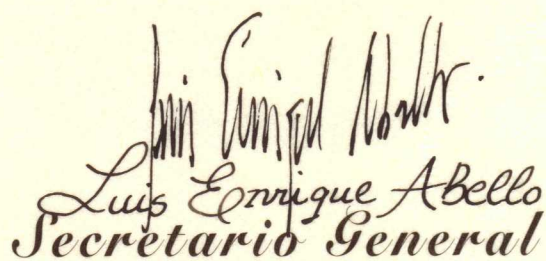 Luis Enrique Abello
Luis Enrique Abello
Secretario General